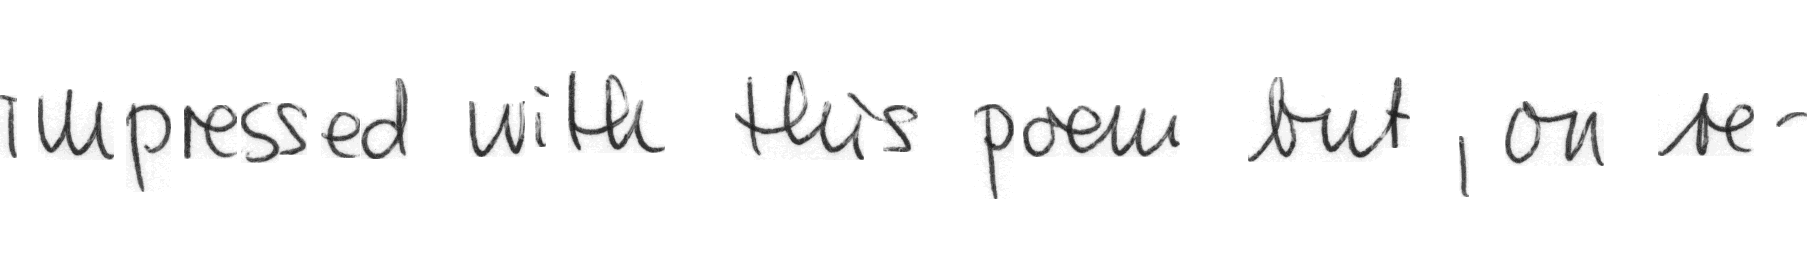 impressed with this poem but, on re-